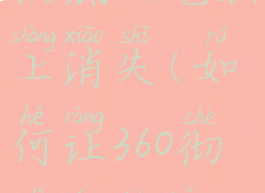 shàng xiāo shī rú
上消失(如
hé ràng chè
何让360彻